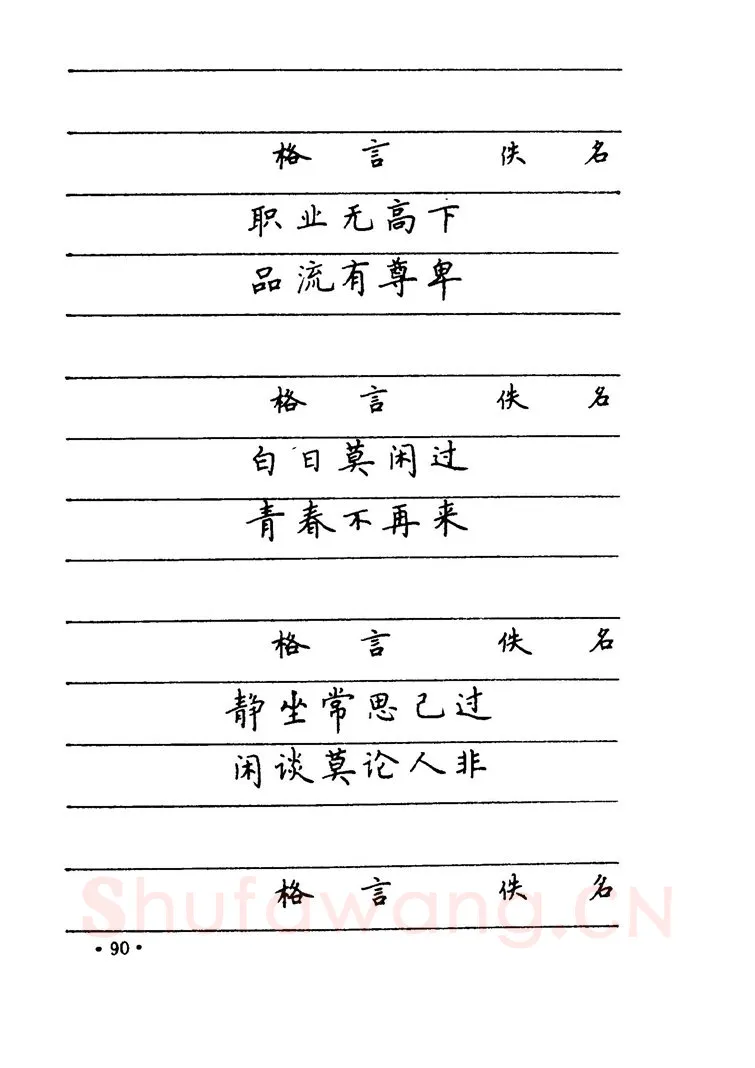 格 言 佚 名
职业无高下
品流有尊卑
格 言 佚 名
白日莫闲过
青春不再来
格 言 佚 名
静坐常思己过
闲谈莫论人非
格 言 佚 名
Shufawang.CN
·90·